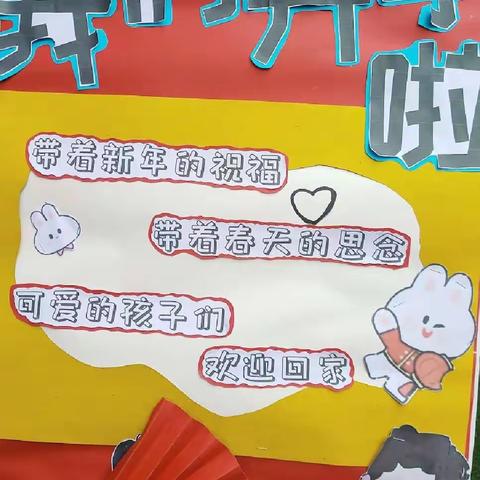 我们开学
啦
带着新年的祝福
带着春天的思念
可爱的孩子们
欢迎回家